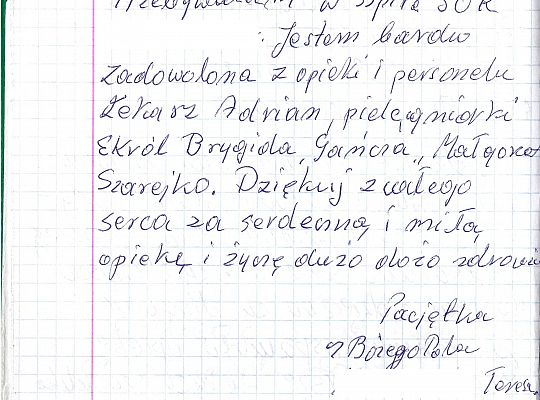 Jestem bardu
zadowolona z opieki i personelu
Lekarz Adrian, pielęgniarki
Ekról Brygida, Gańcza, Małgorzat
Szarejko. Dziękuj z całego
serca za serdeczną i miłą
opiekę i życzę dużo dożo zdrowia
Pacjętka
z Bożego Pola
Teresa